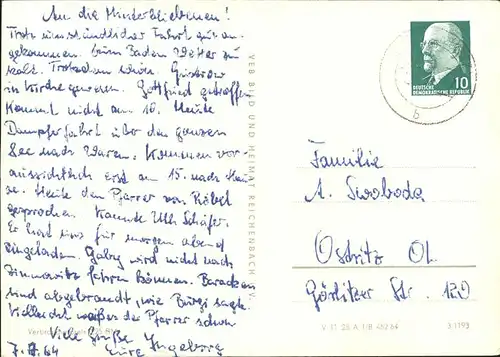 An die Hinterbliebenen!
Trotz umständlicher Fahrt gut an-
gekommen. Zum Baden Wetter zu
kalt. Trotzdem schön. Güstrow
in Kirche gewesen. Gottfried getroffen
Kommt nicht am 10. Heute
Dampferfahrt über den ganzen
See nach Waren. Kommen vor-
aussichtlich erst am 15. nach Hau
se. Heute den Pfarrer von Röbel
gesprochen. Kannte Uth Schäfer.
Er hat uns für morgen abend
eingeladen. Gabry wird nicht nach
fahren können. Baracken
sind abgebrannt, wie Bürgi sagte.
Vielleicht weiß es der Pfarrer schon
Viele Grüße Ingeborg
7. 8. 64 Eure
VEB BILD UND HEIMAT REICHENBACH
10
DEUTSCHE
DEMOKRATISCHE REPUBLIK
b
Familie
A. Swoboda
Ostritz OL
Görlitzer Str. 120
V 11 28 A 1/B 452 64
3 1193